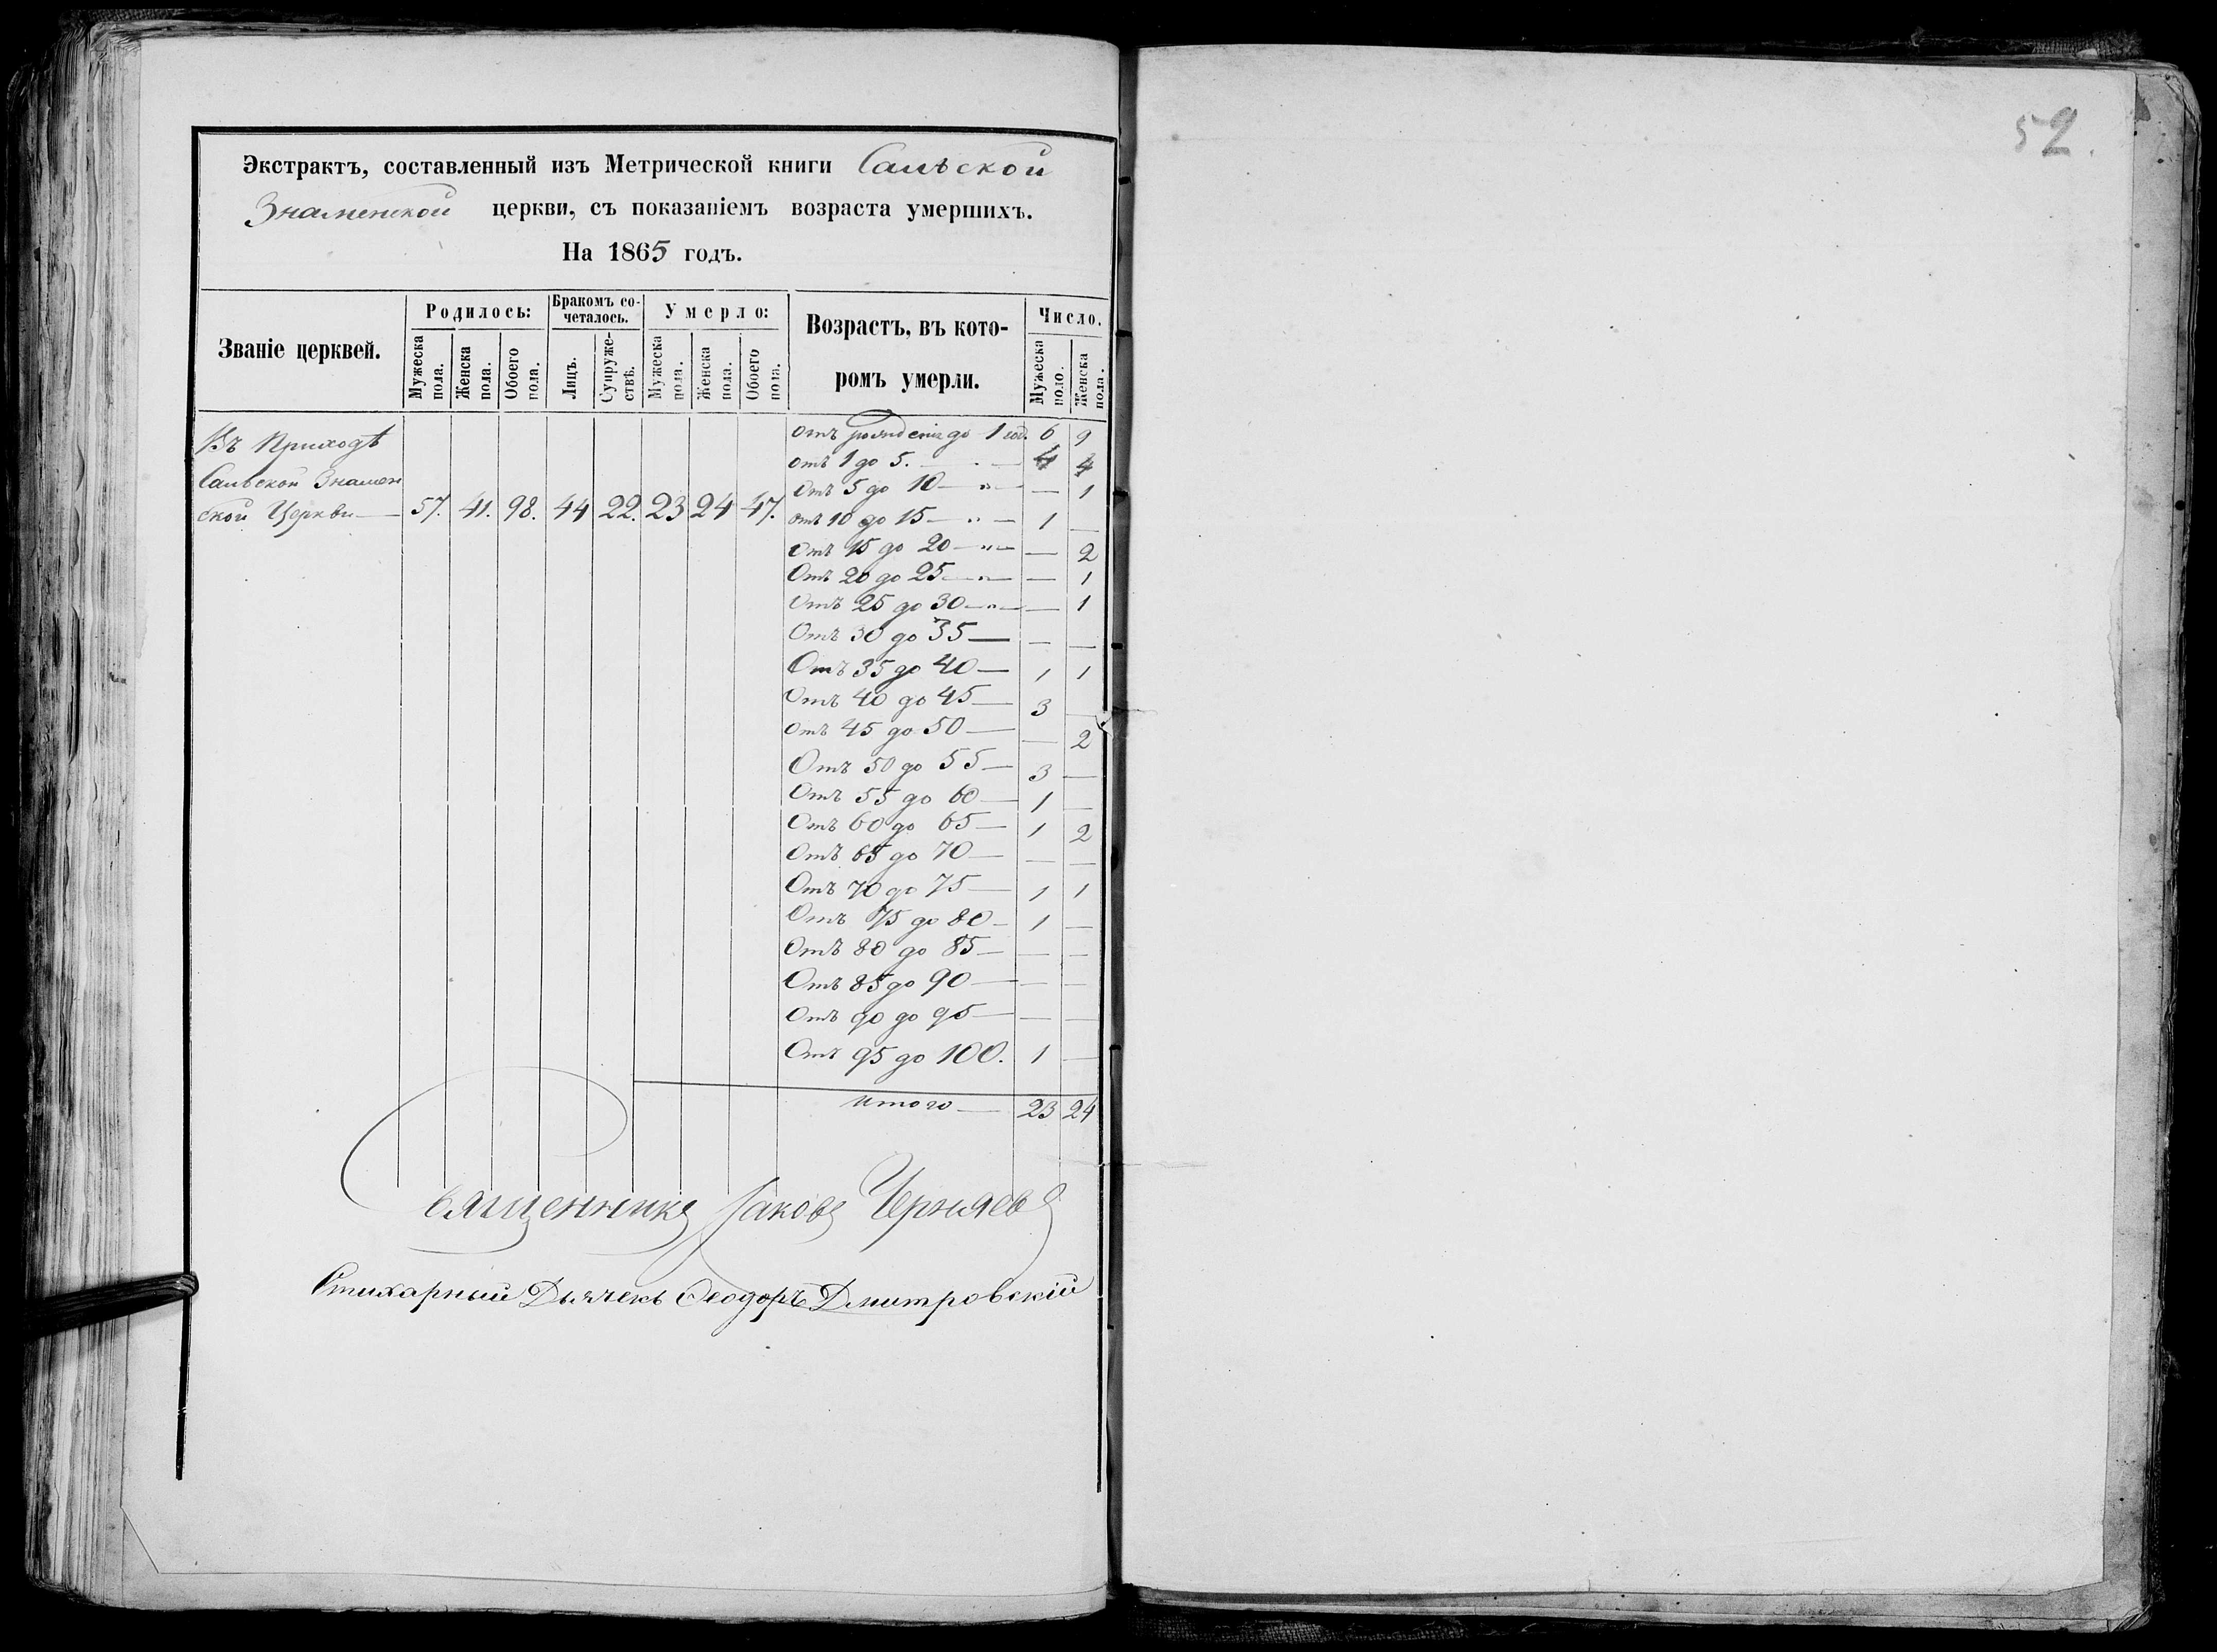 Экстрактъ, составленный изъ Метрической книги Сальской
Знаменской церкви, съ показаніемъ возраста умершихъ.
На 1865 годъ.
Званіе церквей.
Родилось:
Мужеска пола.
Женска пола.
Обоего пола.
Бракомъ со-
четалось.
Лицъ.
Супруже-
ствѣ.
Умерло:
Мужеска пола.
Женска пола.
Обоего пола.
Возрастъ, въ кото-
ромъ умерли.
Число.
Мужеска поло.
Женска пола.
Въ Приходѣ
Сальской Знамен
ской Церкви — 57. 41. 98. 44 22. 23 24 47.
Отъ рожденія до 1 год. 6 9
отъ 1 до 5. — 4 4
Отъ 5 до 10 — „ — — 1
отъ 10 до 15 — „ — 1 —
Отъ 15 до 20 — „ — — 2
Отъ 20 до 25 — „ — — 1
Отъ 25 до 30 — „ — — 1
Отъ 30 до 35 — — —
Отъ 35 до 40 — 1 1
Отъ 40 до 45 — 3 —
Отъ 45 до 50 — — 2
Отъ 50 до 55 — 3 —
Отъ 55 до 60 — 1 —
Отъ 60 до 65 — 1 2
Отъ 65 до 70 — — —
Отъ 70 до 75 — 1 1
Отъ 75 до 80 — 1 —
Отъ 80 до 85 — — —
Отъ 85 до 90 — — —
Отъ 90 до 95 — — —
Отъ 95 до 100. 1 —
Итого — 23 24
Священникъ Іаковъ Черняевъ
Стихарный Дьячекъ Ѳеодоръ Дмитровскій
52.